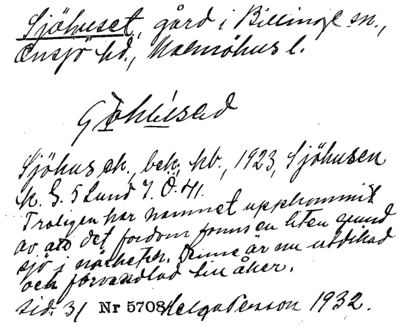 Sjöhuset, gård i Billinge sn.,
Onsjö hd., Malmöhus l.
Sjöhus ek. bek. kb., 1923, Sjöhusen
K. G. 5 Lund 7. Ö. 41.
Troligen har namnet uppkommit
av att det fordom funnits en liten grund
sjö i närheten. Denne är nu utdikad
och förvandlad till åker.
sid. 31 Nr 5708 Helga Persson 1932.